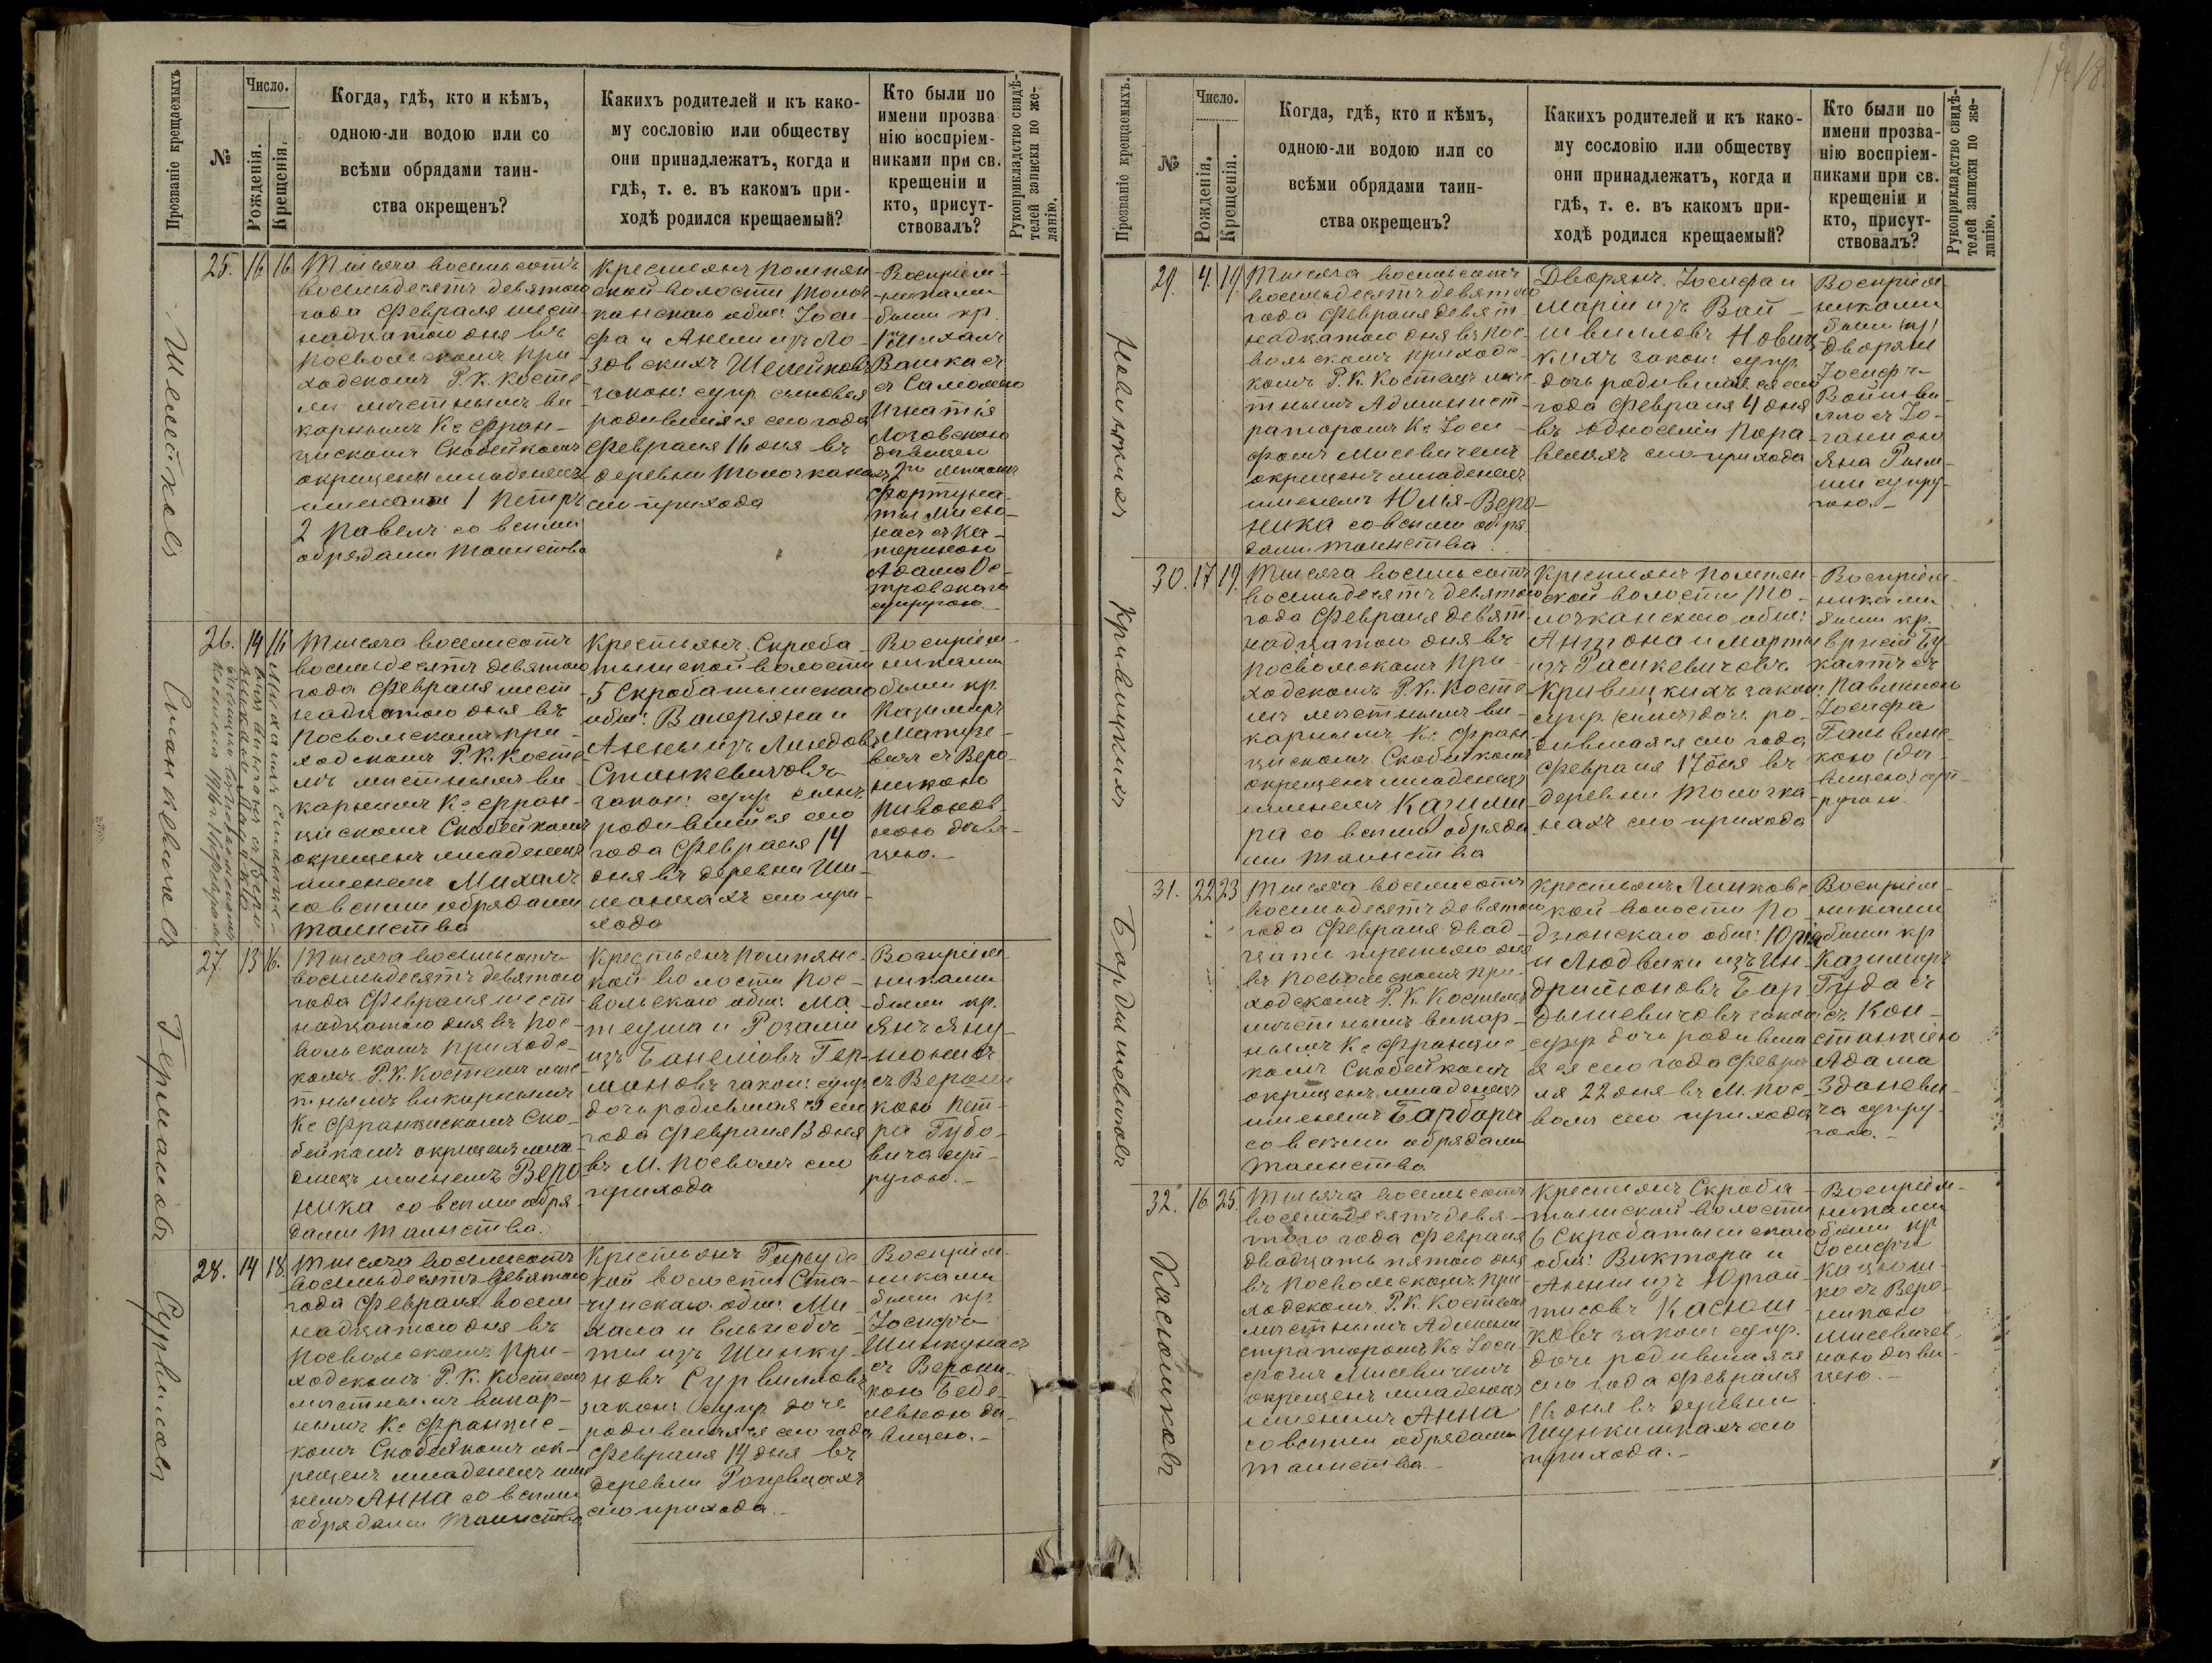 Прозваніе крещаемыхъ
№
Число.
Рожденія.
Крещенія.
Когда, гдѣ, кто и кѣмъ,
одною-ли водою или со
всѣми обрядами таин-
ства окрещенъ?
Какихъ родителей и къ како-
му сословію или обществу
они принадлежатъ, когда и
гдѣ, т. е. въ какомъ при-
ходѣ родился крещаемый?
Кто были по
имени прозва
нію воспріем-
никами при св.
крещеніи и
кто, присут-
ствовалъ?
Рукоприкладство свидѣ-
телей записки по же-
ланію.
25. 16 16
Тысяча восемьсотъ
восемьдесятъ девятого
года Февраля шест-
надцатого дня въ
Посвольскомъ при-
ходскомъ Р. К. Косте
лѣ мѣстнымъ ви-
карнымъ Кс Фран-
цискомъ Скобейкомъ
окрещены младенецъ
именами 1 Петръ
2 Павелъ со всѣми
обрядами таинства
Крестьянъ Помпян
ской волости Толоч
канскаго общ: Іоси-
фа и Анны изъ Ло-
зовскихъ Шелейковъ
закон: супр. сыновья
родившіяся сего года
Февраля 16 дня въ
деревни Толочкана
сего прихода
Воспріем-
никами
были кр.
Вашка съ
Игнатія
Лозовскаго
дѣвицею
Фортуна-
теринною
Адама Ос-
тровскаго
супругою.
26. 14 16
Тысяча восемьсотъ
восемьдесятъ девятого
года Февраля шест
надцатого дня въ
Посвольскомъ при-
ходскомъ Р. К. Косте
лѣ мѣстнымъ ви-
карнымъ Кс Фран-
цискомъ Скобейкомъ
окрещенъ младенецъ
именемъ Михалъ
со всѣми обрядами
таинства
Крестьянъ Скроба-
тышской волости
5 Скробатышскаго
общ: Валеріяна и
Анны изъ Линдовъ
Станкевичовъ
закон: супр. сынъ
родившійся сего
года Февраля 14
дня въ деревни Ши-
сего при-
хода
Воспріем-
никами
были кр.
Казимиръ
Матуле-
вичъ съ Веро-
никою
Пивонов-
ною дѣви-
цею.
27. 13 16.
Тысяча восемьсотъ
восемьдесятъ девятого
года Февраля шест
надцатого дня въ Пос-
вольскомъ приходс-
комъ Р. К. Костелѣ мѣс
тнымъ викарнымъ
Кс Францискомъ Ско-
бейкомъ окрещенъ мла-
денецъ именемъ Веро
ника со всѣми обря-
дами таинства.
Крестьянъ Помпянс-
кой волости Пос-
вольскаго общ: Ма-
теуша и Розаліи
изъ Банелювъ Гер-
мановъ закон: супр.
дочь родившаяся сего
года Февраля 13 дня
въ М. Посволь сего
прихода
Воспріем-
никами
были кр.
Янъ Яну-
съ Верони
кою Пет-
ра Губо-
вича суп-
ругою.
28. 14 18.
Тысяча восемьсотъ
восемьдесятъ девятого
года Февраля восем
надцатого дня въ
Посвольскомъ при-
ходскомъ Р. К. Костелѣ
мѣстнымъ викар-
нымъ Кс Францис-
комъ Скобейкомъ ок-
рещенъ младенецъ име
немъ Анна со всѣми
обрядами таинства
Крестьянъ Гирсудс
кой волости Ста-
чунскаго общ: Ми
хала и Ельжбѣ-
ты изъ Шинку-
новъ Сурвилловъ
закон: супр дочь
родившаяся сего года
Февраля 14 дня въ
деревни
сего прихода.
Воспріем-
никами
были кр.
Іосифъ
Шинкунасъ
съ Верони-
кою Беде-
левною дѣ-
вицею.
Шелейковъ
Станкевичовъ
Германовъ
Сурвилловъ
Прозваніе крещаемыхъ.
№
Число.
Рожденія.
Крещенія.
Когда, гдѣ, кто и кѣмъ,
одною-ли водою или со
всѣми обрядами таин-
ства окрещенъ?
Какихъ родителей и къ како-
му сословію или обществу
они принадлежатъ, когда и
гдѣ, т. е. въ какомъ при-
ходѣ родился крещаемый?
Кто были по
имени прозва-
нію воспріем-
никами при св.
крещеніи и
кто, присут-
ствовалъ?
Рукоприкладство свидѣ-
телей записки по же-
ланію.
18.
29. 4. 19.
Тысяча восемьсотъ
восемьдесятъ девятого
года Февраля девят-
надцатого дня въ Пос-
вольскомъ приходс-
комъ Р. К. Костелѣ мѣс
тнымъ Админист-
раторомъ Кс Іоси-
фомъ Мисевичемъ
окрещенъ младенецъ
именемъ Юлія-Веро-
ника со всѣми обря
дами таинства.
Дворянъ Іосифа и
Маріи изъ Вой-
швилловъ Новиц-
кихъ закон: супр.
дочь родившаяся сего
года Февраля 4 дня
въ околіи Пора-
сего прихода
Воспріем-
никами
были
дворяни
Іосифъ
Войшви-
лло съ Іо-
ганною
Яна Рым-
ши супру-
гою.
30. 17 19.
Тысяча восемьсотъ
восемьдесятъ девятого
года Февраля девят
надцатого дня въ
Посвольскомъ при-
ходскомъ Р. К. Косте
лѣ мѣстнымъ ви-
карнымъ Кс Фран
цискомъ Скобейкомъ
окрещенъ младенецъ
именемъ Казими
ра со всѣми обряда
ми таинства
Крестьянъ Помпян-
ской волости То-
лочканскаго общ:
Антона и Марты
изъ Рашкевичовъ
Кривицкихъ закон:
супр. (сынъ) дочь ро-
дившаяся сего года
Февраля 17 дня въ
деревни Толочка-
нахъ сего прихода
Воспріем-
никами
были кр.
Павлиною
Іосифа
кою (дѣ-
вицею) суп-
ругою.
31. 22 23
Тысяча восемьсотъ
восемьдесятъ девятого
года Февраля двад-
цать третьяго дня
въ Посвольскомъ при-
ходскомъ Р. К. Костелѣ
мѣстнымъ викар-
нымъ Кс Францис-
комъ Скобейкомъ
окрещенъ младенецъ
именемъ Барбара
со всѣми обрядами
таинства
Крестьянъ Линковс
кой волости По-
дзюнскаго общ: Юрія
и Людвики изъ Ин-
дрилюновъ Бар-
дышевичовъ закон:
супр дочь родивша
яся сего года Февра
ля 22 дня въ М. Пос-
воль сего прихода
Воспріем-
никами
были кр
Казимиръ
Гуда съ
съ Кон-
станціею
Адама
Зданеви-
ча супру-
гою.
32. 16 25.
Тысяча восемьсотъ
восемьдесятъ девя-
того года Февраля
двадцать пятого дня
въ Посвольскомъ при
ходскомъ Р. К. Костелѣ
мѣстнымъ Админи
страторомъ Кс Іоси
фомъ Мисевичемъ
окрещенъ младенецъ
именемъ Анна
со всѣми обрядами
таинства
Крестьянъ Скроба-
тышской волости
6 Скробатышскаго
общ: Виктора и
Анны изъ Юргай-
тисовъ Касюш-
ковъ закон: супр.
дочь родившаяся
сего года Февраля
16 дня въ деревни
сего
прихода.
Воспріем-
никами
были кр
Іосифъ
Кацюш-
ко съ Веро-
никою
Мисевичев
ною дѣви-
цею.
Новицкихъ
Кривицкихъ
Бардышевичовъ
Касюшковъ